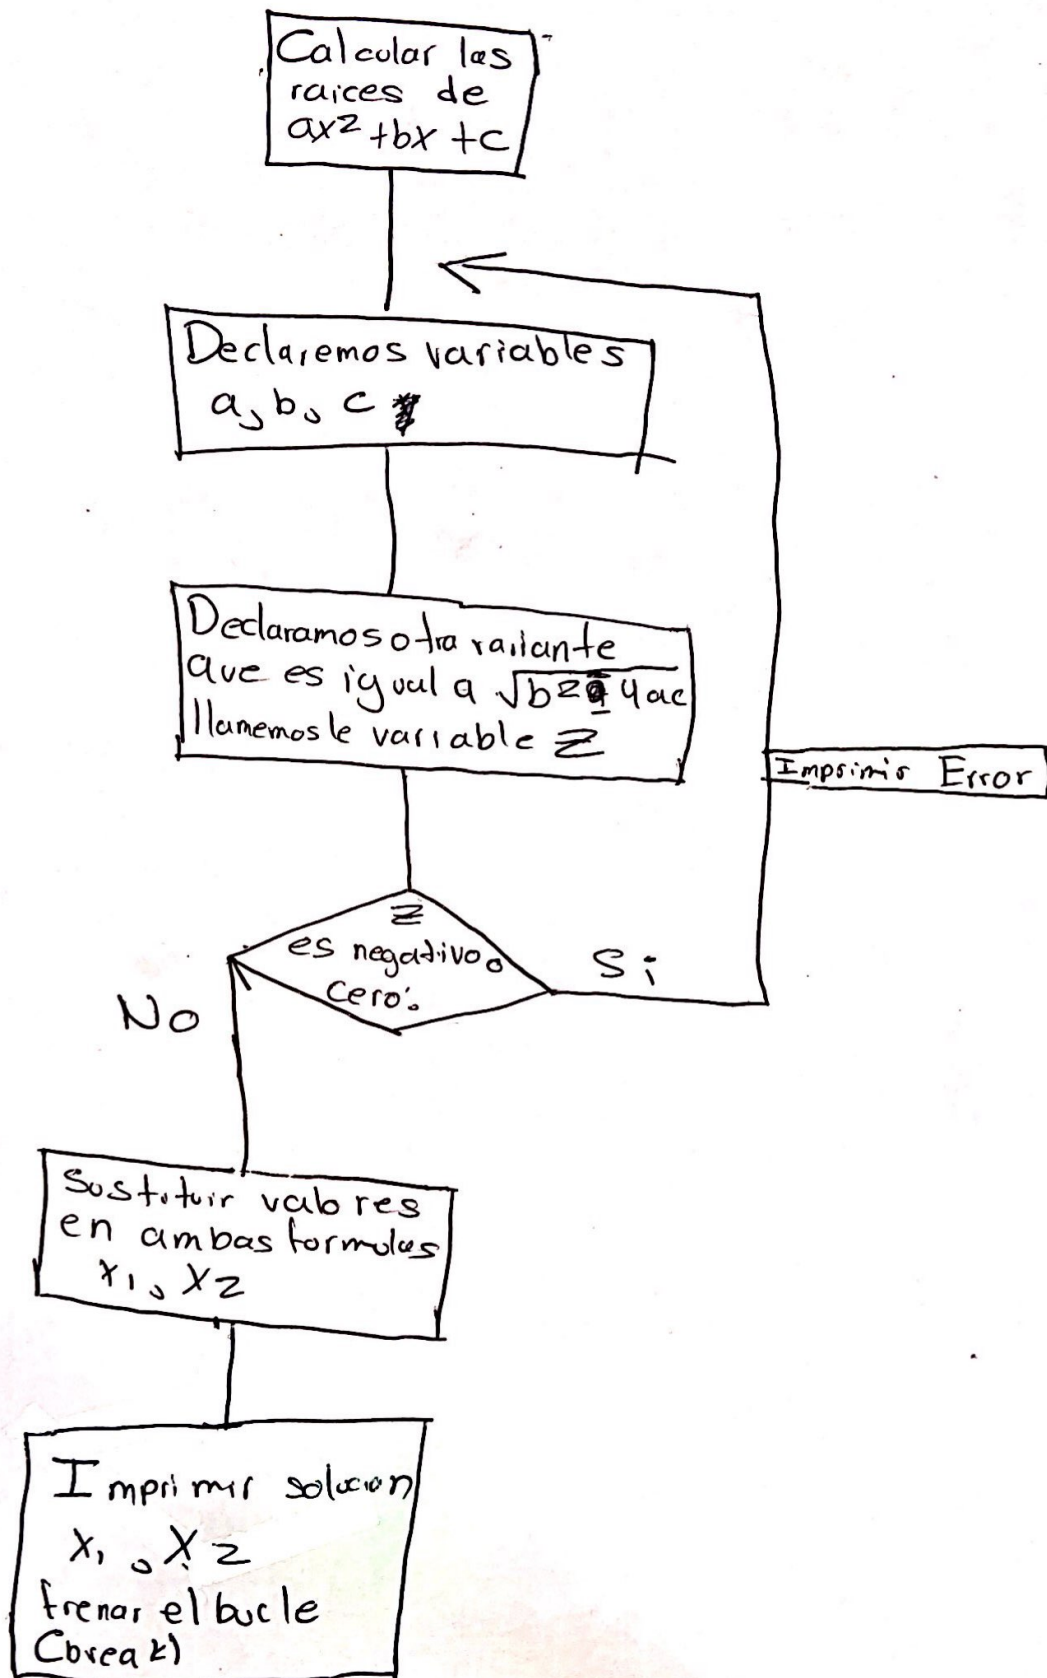 Calcular las
raices de
ax2 +bx +c
Declaremos variables
a, b, c
Declaramos otra variante
que es igual a √b2 - 4ac
llamemosle variable Z
Imprimir Error
Z
es negativo o
cero:
Si
No
Sustituir valores
en ambas formulas
x1, x2
Imprimir solucion
x1, x2
frenar el bucle
(break)